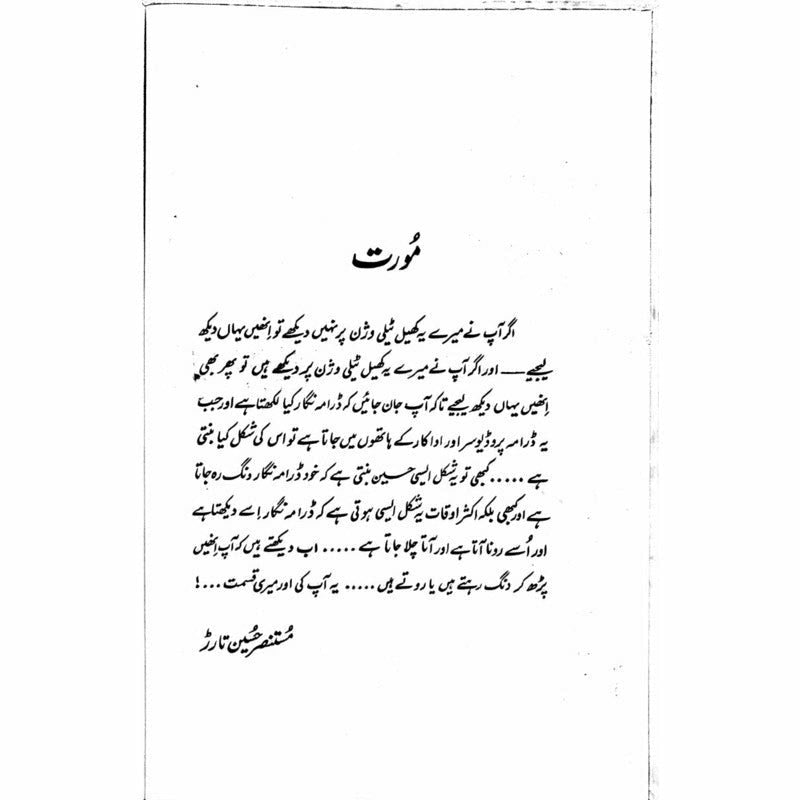 مُورت
اگر آپ نے میرے یہ کھیل ٹیلی وژن پر نہیں دیکھے تو اِنھیں یہاں دیکھ
لیجیے — اور اگر آپ نے میرے یہ کھیل ٹیلی وژن پر دیکھے ہیں تو پھر بھی
اِنھیں یہاں دیکھ لیجیے تاکہ آپ جان جائیں کہ ڈرامہ نگار کیا لکھتا ہے اور جب
یہ ڈرامہ پروڈیوسر اور اداکار کے ہاتھوں میں جاتا ہے تو اس کی شکل کیا بنتی
ہے ..... کبھی تو یہ شکل ایسی حسین بنتی ہے کہ خود ڈرامہ نگار دنگ رہ جاتا
ہے اور کبھی بلکہ اکثر اوقات یہ شکل ایسی ہوتی ہے کہ ڈرامہ نگار اِسے دیکھتا ہے
اور اُسے رونا آتا ہے اور آتا چلا جاتا ہے ..... اب دیکھتے ہیں کہ آپ اِنھیں
پڑھ کر دنگ رہتے ہیں یا روتے ہیں ..... یہ آپ کی اور میری قسمت ...!
مُستنصر حُسین تارڑ